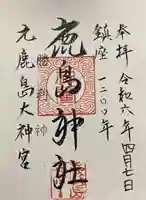 奉拝 令和六年四月七日
鎮座一二〇〇年
鹿島神社
勝利の神
元鹿島大神宮